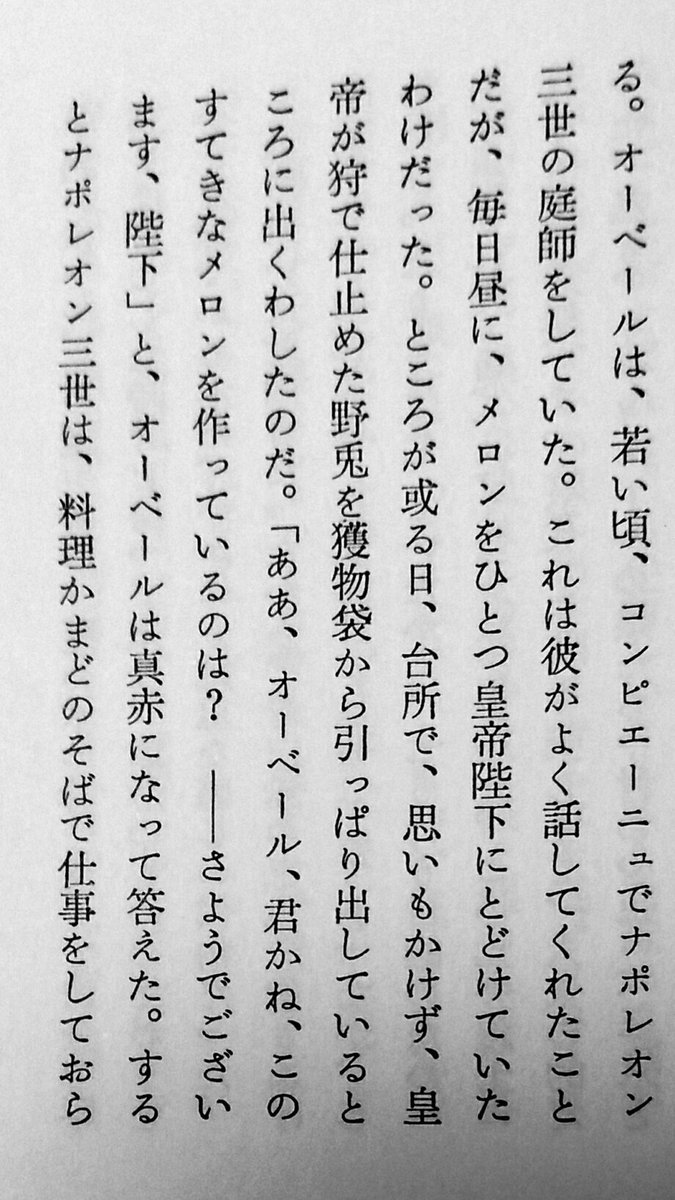 る。オーベールは、若い頃、コンピエーニュでナポレオン
三世の庭師をしていた。これは彼がよく話してくれたこと
だが、毎日昼に、メロンをひとつ皇帝陛下にとどけていた
わけだった。ところが或る日、台所で、思いもかけず、皇
帝が狩で仕止めた野兎を獲物袋から引っぱり出していると
ころに出くわしたのだ。「ああ、オーベール、君かね、この
すてきなメロンを作っているのは？　――さようでござい
ます、陛下」と、オーベールは真赤になって答えた。する
とナポレオン三世は、料理かまどのそばで仕事をしておら